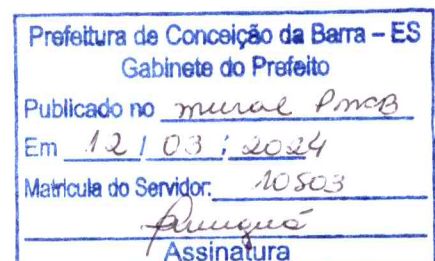 Prefeitura de Conceição da Barra – ES
Gabinete do Prefeito
Publicado no mural PMCB
Em 12 / 03 / 2024
Matricula do Servidor: 10503
Assinatura